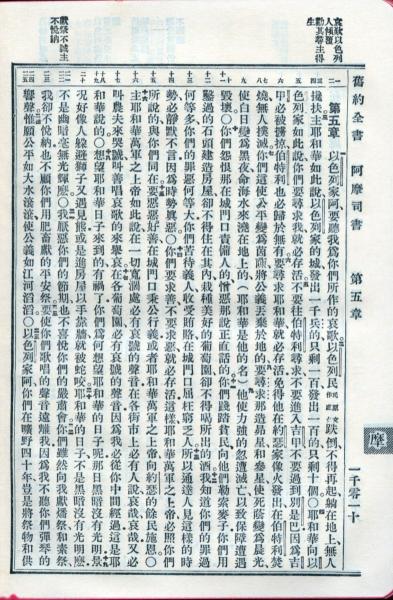 舊約全書 阿摩司書 第五章
哀歌以色列人傾覆
勸其尋主得生
獻祭不誠主不悅納
第五章 以色列家阿要聽我為你們所作的哀歌以色列民跌倒不得再起躺在地上無人
攙扶主耶和華如此說以色列家的城發出一千兵的只剩一百發出一百的只剩十個○耶和華向以
色列家如此說你們要尋求我就必存活不要往伯特利尋求不要進入吉甲不要過到別是巴因為吉
甲必被擄掠伯特利也必歸於無有要尋求耶和華就必存活免得他在約瑟家像火發出在伯特利焚
燒無人撲滅你們這使公平變為茵蔯將公義丟棄於地的要尋求那造昴星和參星使死蔭變為晨光
使白日變為黑夜命海水來澆在地上的(耶和華是他的名)他使力強的忽遭滅亡以致保障遭遇
毀壞○你們怨恨那在城門口責備人的憎惡那說正直話的你們踐踏貧民向他們勒索麥子你們用
鑿過的石頭建造房屋卻不得住在其內栽種美好的葡萄園卻不得喝所出的酒我知道你們的罪過
何等多你們的罪惡何等大你們苦待義人收受賄賂在城門口屈枉窮乏人所以通達人見這樣的時
勢必靜默不言因為時勢真惡○你們要求善不要求惡就必存活這樣耶和華萬軍之上帝必照你們
所說的與你們同在要惡惡好善在城門口秉公行義或者耶和華萬軍之上帝向約瑟的餘民施恩○
主耶和華萬軍之上帝如此說在一切寬闊處必有哀號的聲音在各街市上必有人說哀哉哀哉又必
叫農夫來哭號叫善唱哀歌的來舉哀在各葡萄園必有哀號的聲音因為我必從你中間經過這是耶
和華說的○想望耶和華日子來到的有禍了你們為何想望耶和華的日子呢那日黑暗沒有光明景
況好像人躲避獅子又遇見熊或是進房屋以手靠牆就被蛇咬耶和華的日子不是黑暗沒有光明麼
不是幽暗毫無光輝麼○我厭惡你們的節期也不喜悅你們的嚴肅會你們雖然向我獻燔祭和素祭
我卻不悅納也不顧你們用肥畜獻的平安祭要使你們歌唱的聲音遠離我因為我不聽你們彈琴的
響聲惟願公平如大水滾滾使公義如江河滔滔○以色列家阿你們在曠野四十年豈是將祭物和供
摩
一千零一十